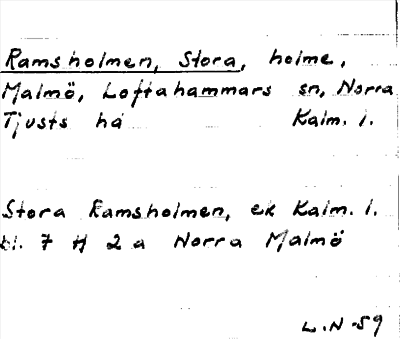 Ramsholmen, Stora, holme,
Malmö, Loftahammars sn, Norra
Tjusts hd Kalm. l.
Stora Ramsholmen, ek Kalm. l.
bl. 7 H 2 a Norra Malmö
L.N -59